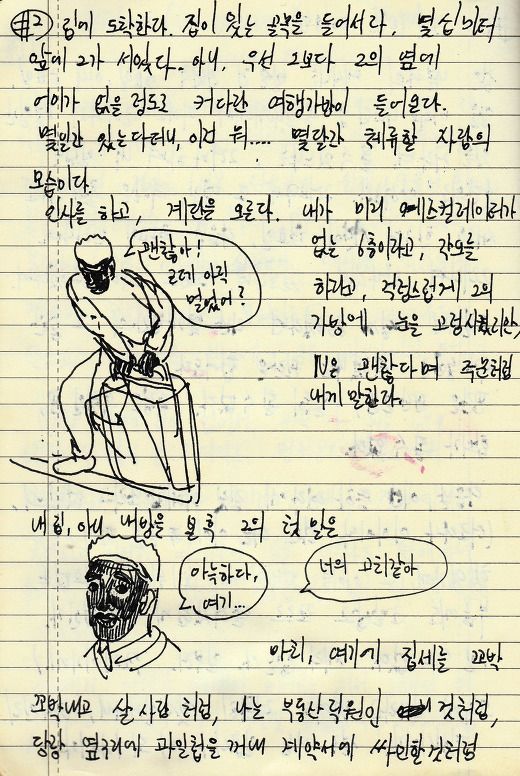 #2) 집에 도착한다. 집이 있는 골목을 들어서라, 몇십미터
앞에 그가 서있다. 아니, 우선 그보다 그의 옆에
어이가 없을 정도로 커다란 여행가방이 들어온다.
몇일간 있는다더니, 이건 뭐.... 몇달간 체류할 사람의
모습이다.
인사를 하고, 계단을 오른다. 내가 미리 에스컬레이터가
없는 6층이라고, 각오를
하라고, 걱정스럽게 그의
가방에 눈을 고정시켰지만,
N은 괜찮다며 주문처럼
내게 말한다.
괜찮아!
근데 아직
멀었어?
내 집, 아니 내방을 본 후 그의 첫 말은
아늑하다,
여기...
너의 고치같아
마치, 여기에 집세를 꼬박
꼬박내고 살 사람처럼, 나는 부동산 직원인 것처럼,
당장 옆구리에 파일럽을 꺼내 계약서에 싸인할것처럼